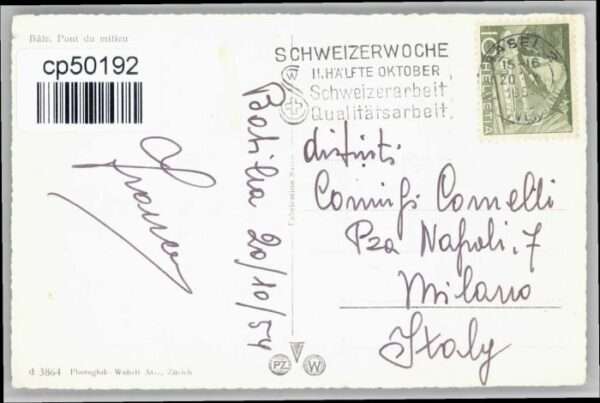 Bâle. Pont du milieu
cp50192
SCHWEIZERWOCHE
II. HÄLFTE OKTOBER
Schweizerarbeit
Qualitätsarbeit
BASEL 2
15-16
20
10 HELVETIA
Franco
20/10/54
distinti
Coniugi Comelli
Pza Napoli. 7
Milano
Italy
d 3864 Photoglob-Wehrli Zürich
PZ W